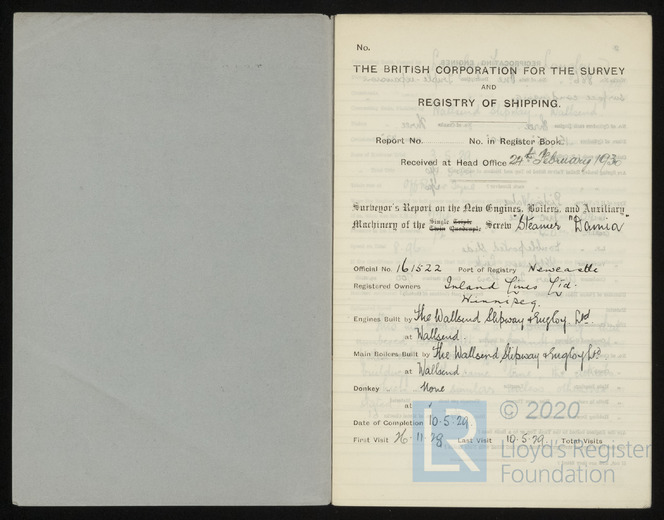 No.
THE BRITISH CORPORATION FOR THE SURVEY
AND
REGISTRY OF SHIPPING.
Report No. No. in Register Book
Received at Head Office 24th February 1930
Surveyor's Report on the New Engines, Boilers, and Auxiliary
Machinery of the Single Triple Twin Quadruple Screw Steamer "Damia"
Official No. 161522 Port of Registry Newcastle
Registered Owners Inland Lines Ltd.
Winnipeg.
Engines Built by The Wallsend Slipway & Engrg Co Ltd
at Wallsend.
Main Boilers Built by The Wallsend Slipway & Engrg Co Ld
at Wallsend
Donkey None
at
Date of Completion 10.5.29.
First Visit 26.11.28 Last Visit 10.5.29. Total Visits
LR
© 2020
Lloyd's Register
Foundation